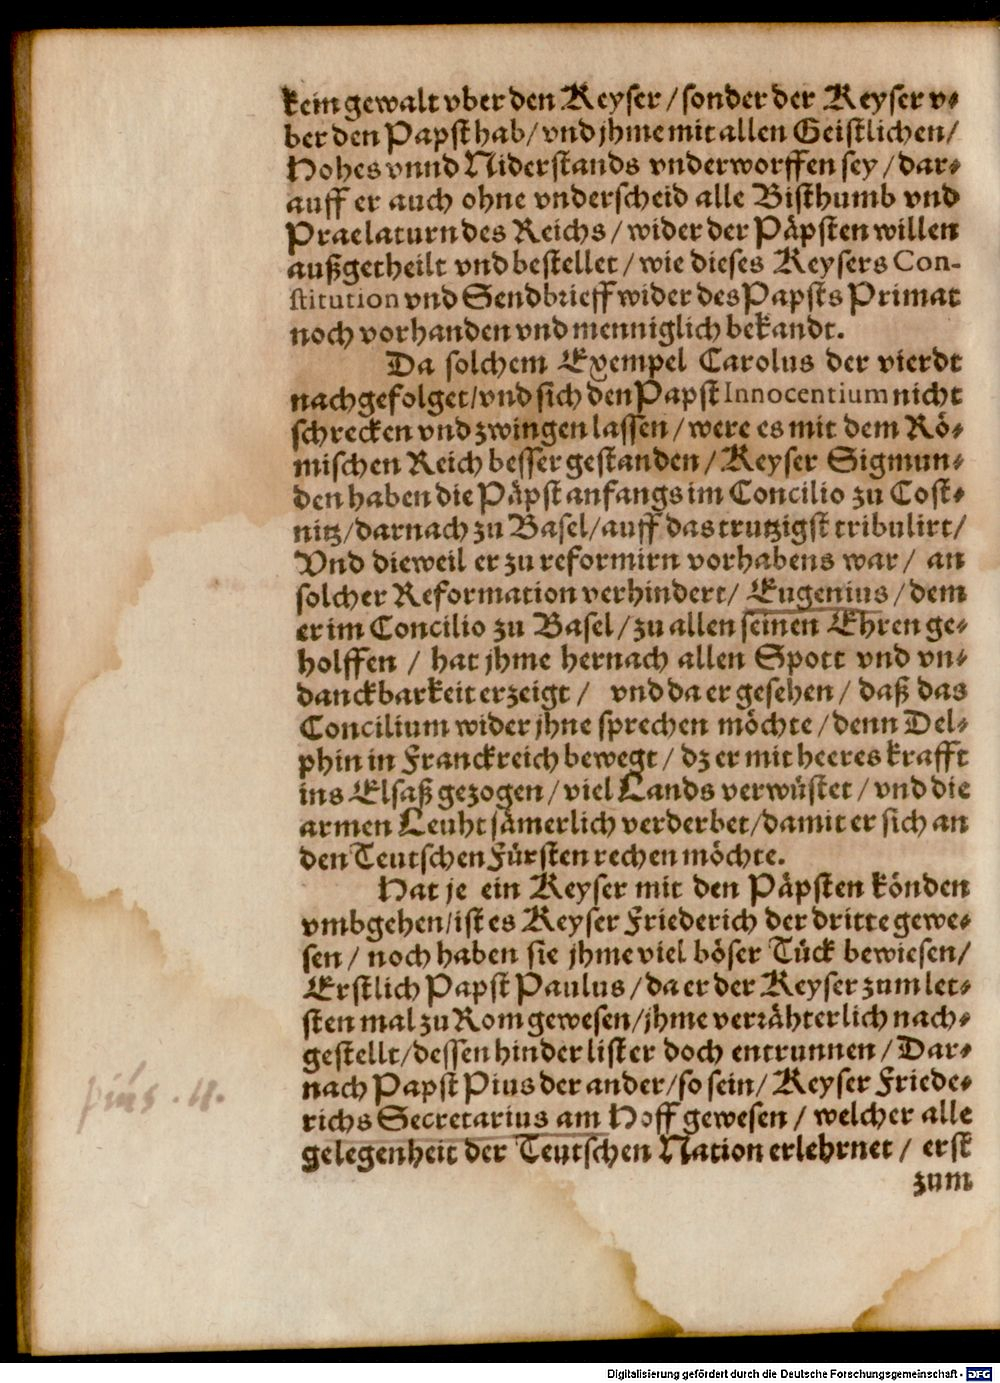 kein gewalt vber den Keyser / sonder der Keyser v⸗
ber den Papst hab / vnd jhme mit allen Geistlichen /
Hohes vnnd Niderstands vnderworffen sey / dar⸗
auff er auch ohne vnderscheid alle Bisthumb vnd
Praelaturn des Reichs / wider der Päpsten willen
außgetheilt vnd bestellet / wie dieses Keysers Con-
stitution vnd Sendbrieff wider des Papsts Primat
noch vorhanden vnd menniglich bekandt.
Da solchem Exempel Carolus der vierdt
nachgefolget / vnd sich den Papst Innocentium nicht
schrecken vnd zwingen lassen / were es mit dem Rö⸗
mischen Reich besser gestanden / Keyser Sigmun⸗
den haben die Päpst anfangs im Concilio zu Cost⸗
nitz / darnach zu Basel / auff das trutzigst tribulirt /
Vnd dieweil er zu reformirn vorhabens war / an
solcher Reformation verhindert / Eugenius / dem
er im Concilio zu Basel / zu allen seinen Ehren ge⸗
holffen / hat jhme hernach allen Spott vnd vn⸗
danckbarkeit erzeigt / vnd da er gesehen / daß das
Concilium wider jhne sprechen möchte / denn Del⸗
phin in Franckreich bewegt / dz er mit heeres krafft
ins Elsaß gezogen / viel Lands verwüstet / vnd die
armen Leuht jämerlich verderbet / damit er sich an
den Teutschen Fürsten rechen möchte.
Hat je ein Keyser mit den Päpsten könden
vmbgehen / ist es Keyser Friederich der dritte gewe⸗
sen / noch haben sie jhme viel böser Tück bewiesen /
Erstlich Papst Paulus / da er der Keyser zum let⸗
sten mal zu Rom gewesen / jhme verrähterlich nach⸗
gestellt / dessen hinderlist er doch entrunnen / Dar⸗
nach Papst Pius der ander / so sein / Keyser Friede⸗
richs Secretarius am Hoff gewesen / welcher alle
gelegenheit der Teutschen Nation erlehrnet / erst
zum
pius . II.
Digitalisierung gefördert durch die Deutsche Forschungsgemeinschaft - DFG